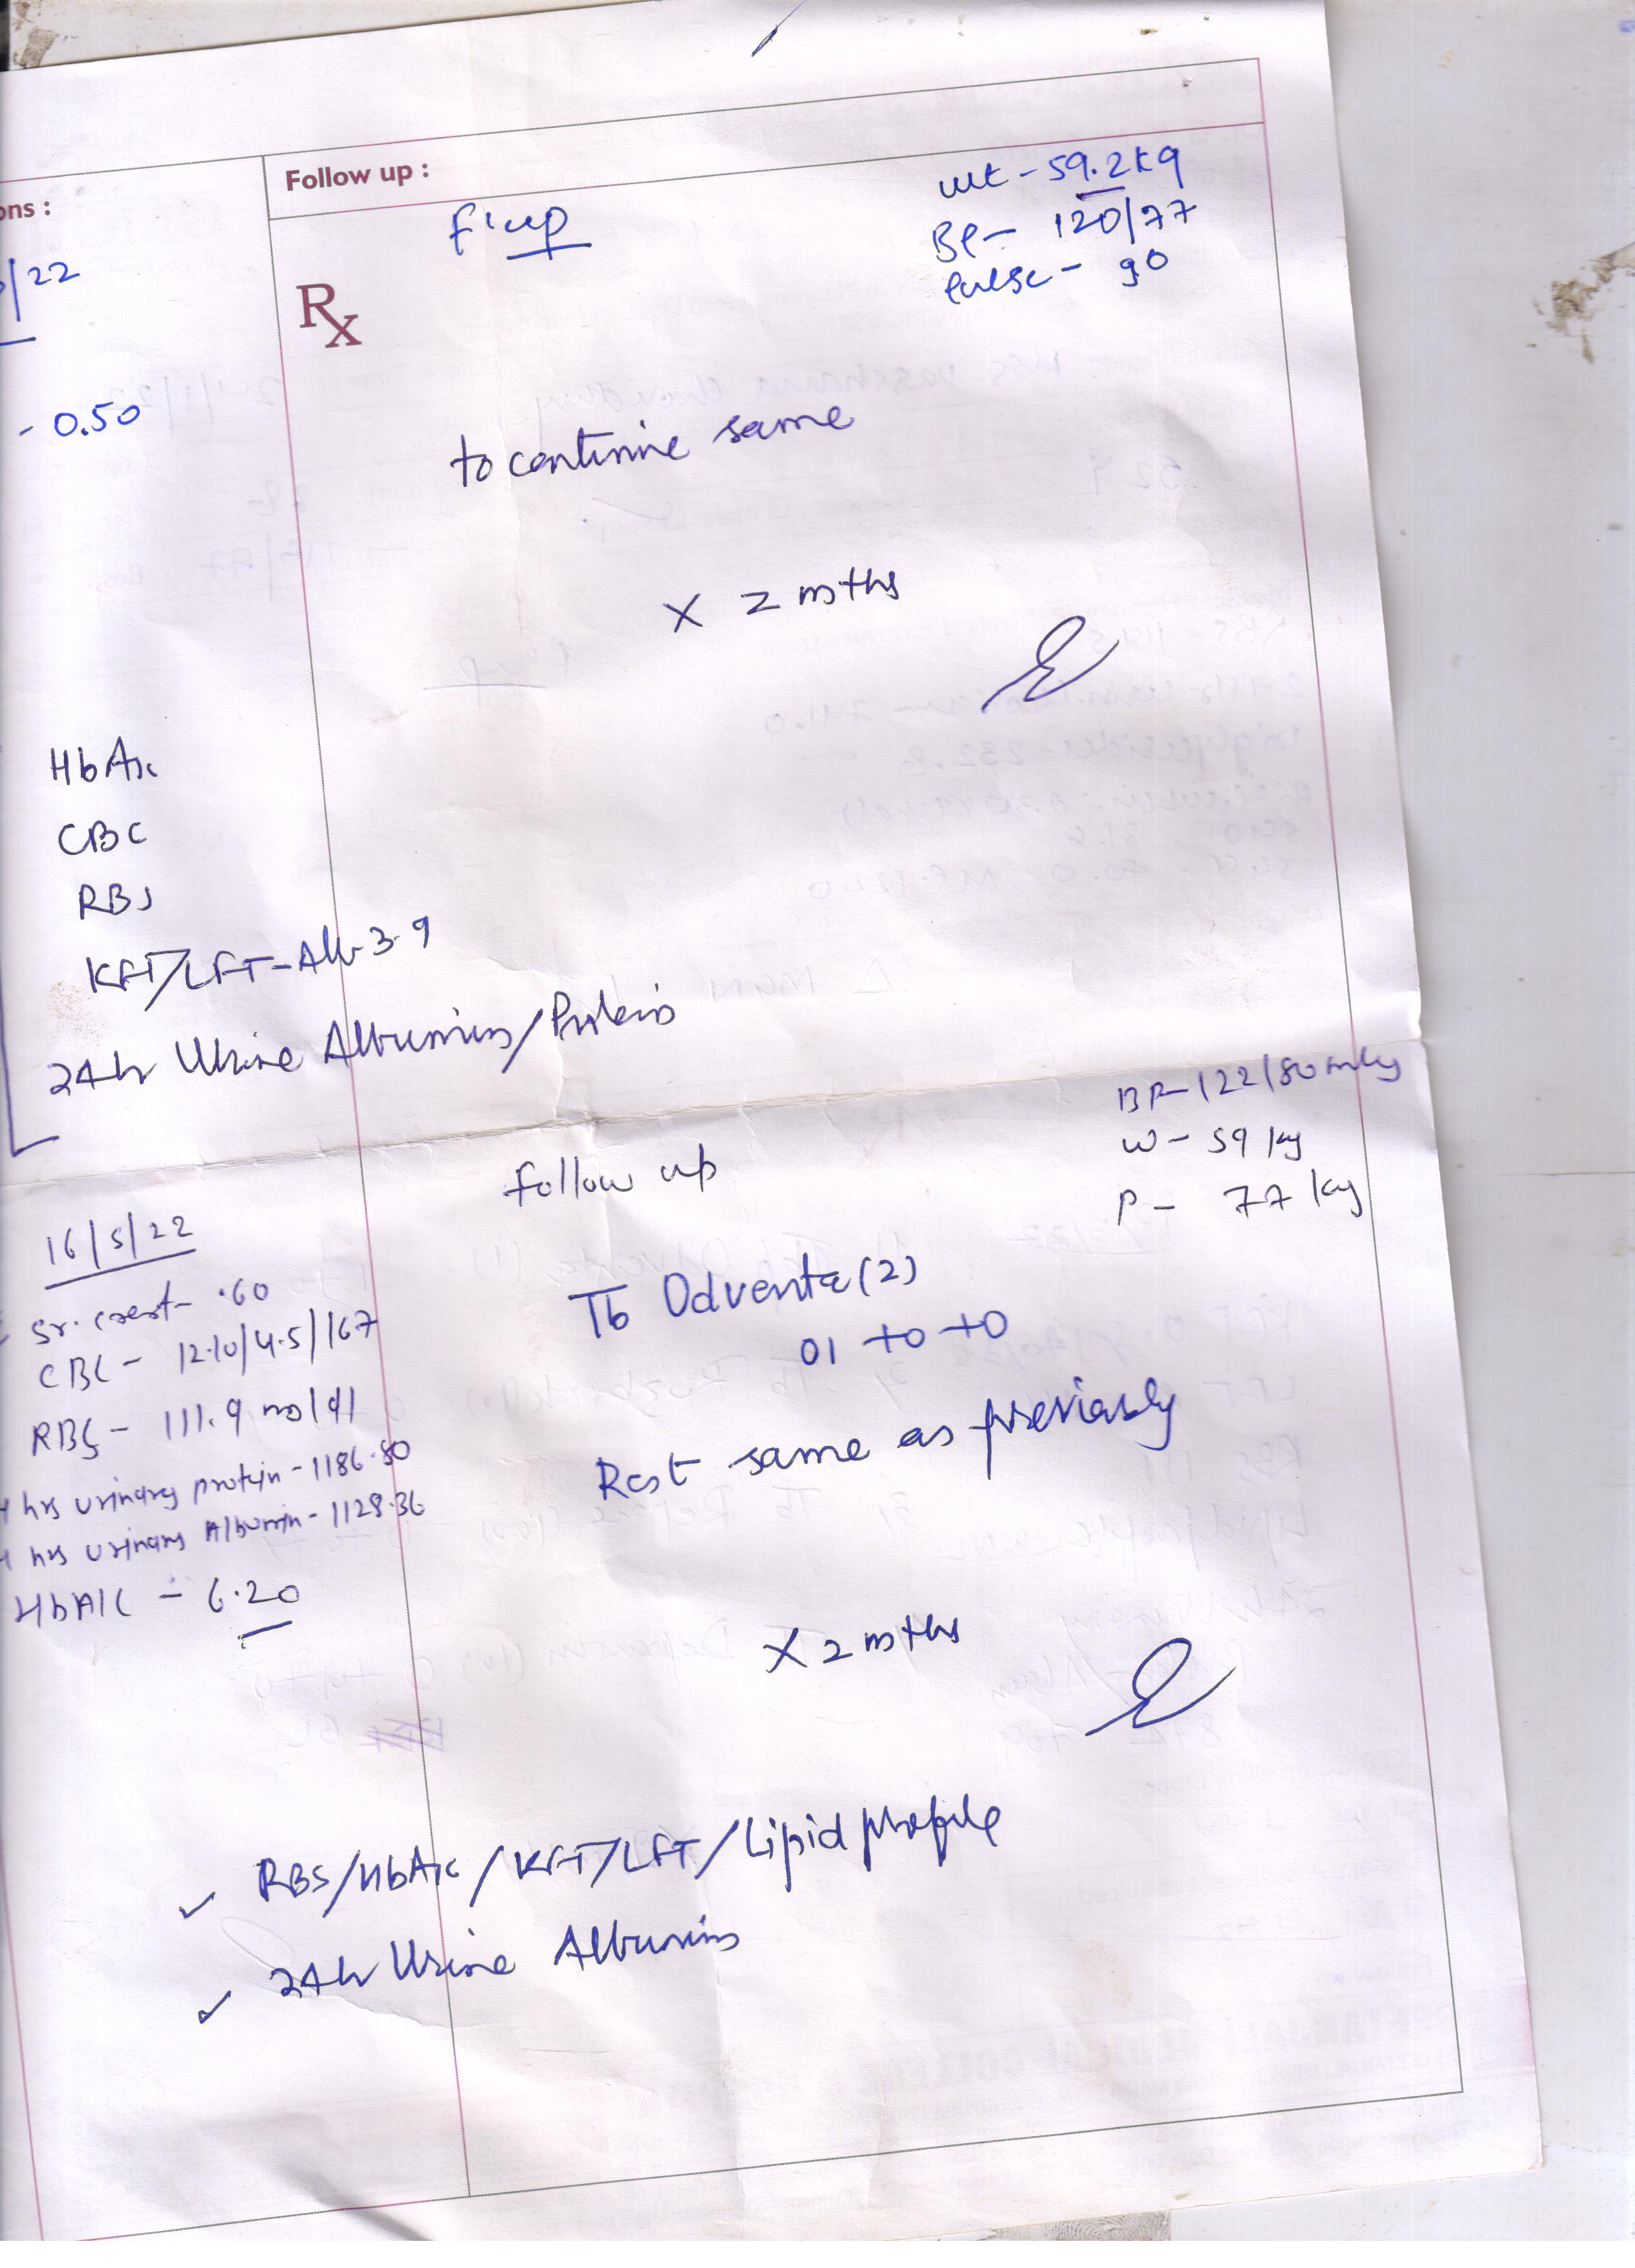 Follow up :
ons :
F'up
wt - 59.2kg
BP - 120/77
Pulse - 90
/22
Rx
- 0.50
to continue same
X 2 mths
HbA1c
CBC
RBS
KFT/LFT - Alb 3.9
24hr Urine Albumins/Proteins
BP - 122/80 mHg
W - 59 kg
P - 77 kg
Follow up
16/5/22
Sr. creat - .60
CBC - 12.10/4.5/167
RBS - 111.9 mg/dl
hrs urinary protein - 1186.80
hrs urinary Albumin - 1128.36
HbA1C - 6.20
Tb Odventa (2)
01 to to
Rest same as previously
X 2 mths
RBS/HbA1c/KFT/LFT/Lipid profile
24hr Urine Albumins